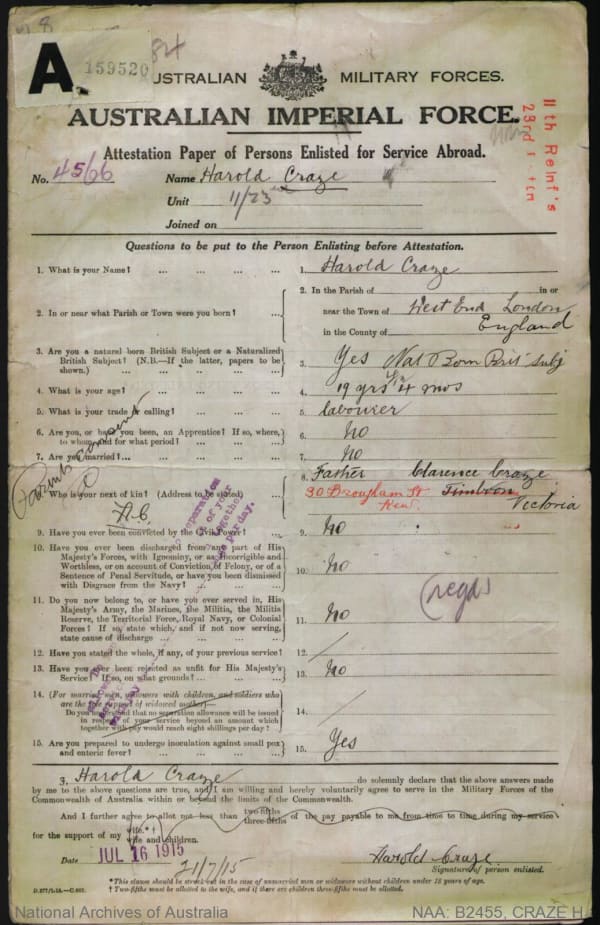 84
A.
159520
AUSTRALIAN MILITARY FORCES.
AUSTRALIAN IMPERIAL FORCE.
11th Reinf's
23rd
Attestation Paper of Persons Enlisted for Service Abroad.
No. 4566 Name Harold Craze
Unit 11/23
Joined on
Questions to be put to the Person Enlisting before Attestation.
1. What is your Name? ... ... ... ... 1. Harold Craze
2. In or near what Parish or Town were you born? ... 2. In the Parish of in or
near the Town of West End London
in the County of England
3. Are you a natural born British Subject or a Naturalized
British Subject? (N.B.—If the latter, papers to be
shown.) ... ... ... ... 3. Yes Nat Born Brit Subj
4. What is your age? ... ... ... ... 4. 19 yrs 4 mos
5. What is your trade or calling? ... ... ... 5. labourer
6. Are you, or have you been, an Apprentice? If so, where,
to whom, and for what period? ... ... ... 6. No
7. Are you married? ... ... ... ... 7. No
Parents consent
8. Who is your next of kin? (Address to be stated) 8. Father Clarence Craze
30 Brougham St Timboon Victoria
Kew.
9. Have you ever been convicted by the Civil Power? ... 9. No
10. Have you ever been discharged from any part of His
Majesty's Forces, with Ignominy, or as Incorrigible and
Worthless, or on account of Conviction of Felony, or of a
Sentence of Penal Servitude, or have you been dismissed
with Disgrace from the Navy? ... ... ... 10. No
11. Do you now belong to, or have you ever served in, His
Majesty's Army, the Marines, the Militia, the Militia
Reserve, the Territorial Force, Royal Navy, or Colonial
Forces? If so, state which, and if not now serving,
state cause of discharge ... ... ... 11. No
12. Have you stated the whole, if any, of your previous service? 12. /
13. Have you ever been rejected as unfit for His Majesty's
Service? If so, on what grounds? ... ... 13. No
14. (For married men, widowers with children, and soldiers who
are the sole support of widowed mother)—
Do you understand that no separation allowance will be issued
in respect of your service beyond an amount which
together with pay would reach eight shillings per day? 14. /
15. Are you prepared to undergo inoculation against small pox
and enteric fever? ... ... ... ... 15. Yes
I, Harold Craze do solemnly declare that the above answers made
by me to the above questions are true, and I am willing and hereby voluntarily agree to serve in the Military Forces of the
Commonwealth of Australia within or beyond the limits of the Commonwealth.
And I further agree to allot not less than two-fifths three-fifths of the pay payable to me from time to time during my service
for the support of my wife.*† wife and children.
Date JUL 16 1915 21/7/15 Harold Craze
Signature of person enlisted.
*This clause should be struck out in the case of unmarried men or widowers without children under 18 years of age.
†Two-fifths must be allotted to the wife, and if there are children three-fifths must be allotted.
National Archives of Australia NAA: B2455, CRAZE H